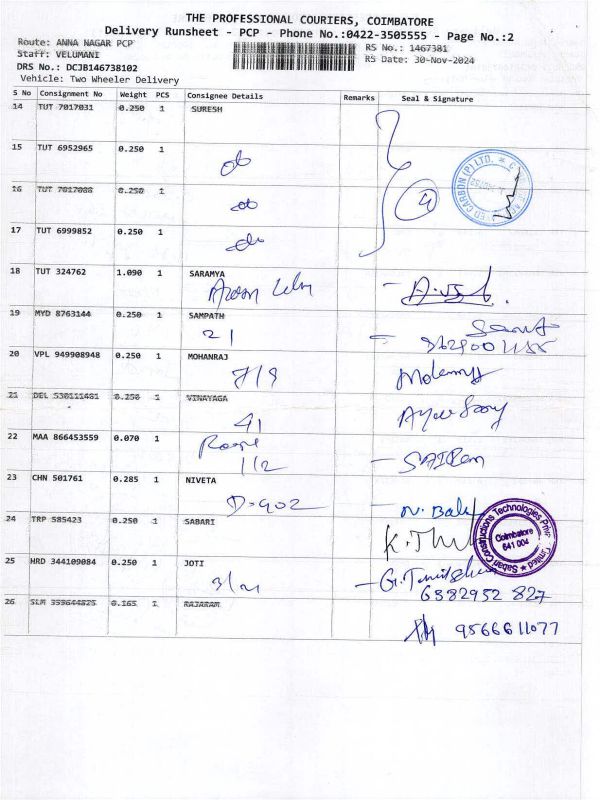 THE PROFESSIONAL COURIERS, COIMBATORE
Delivery Runsheet - PCP - Phone No.:0422-3505555 - Page No.:2
Route: ANNA NAGAR PCP
Staff: VELUMANI
DRS No.: DCJB146738102
Vehicle: Two Wheeler Delivery
RS No.: 1467381
RS Date: 30-Nov-2024
S No Consignment No Weight PCS Consignee Details Remarks Seal & Signature
14 TUT 7017031 0.250 1 SURESH
15 TUT 6952965 0.250 1
do
16 TUT 7017088 0.250 1
do
4
17 TUT 6999852 0.250 1
do
18 TUT 324762 1.090 1 SARAMYA
19 MYD 8763144 0.250 1 SAMPATH
21
20 VPL 949908948 0.250 1 MOHANRAJ
7/9
21 DEL 530111481 0.250 1 VINAYAGA
41
22 MAA 866453559 0.070 1
1/2
SAIRam
23 CHN 501761 0.285 1 NIVETA
D-902
N. Bala
24 TRP 585423 0.250 1 SABARI
Sabari Constructions Technologies Private Limited
Coimbatore
641 004
25 HRD 344109084 0.250 1 JOTI
3/21
6382952 827
26 SLM 359644825 0.165 1 RAJARAM
9566611077